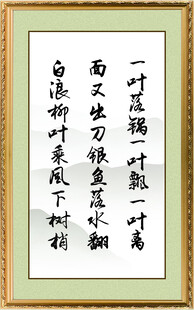 一叶落锅一叶飘一叶离
面又出刀银鱼落水翻
白浪柳叶乘风下树梢